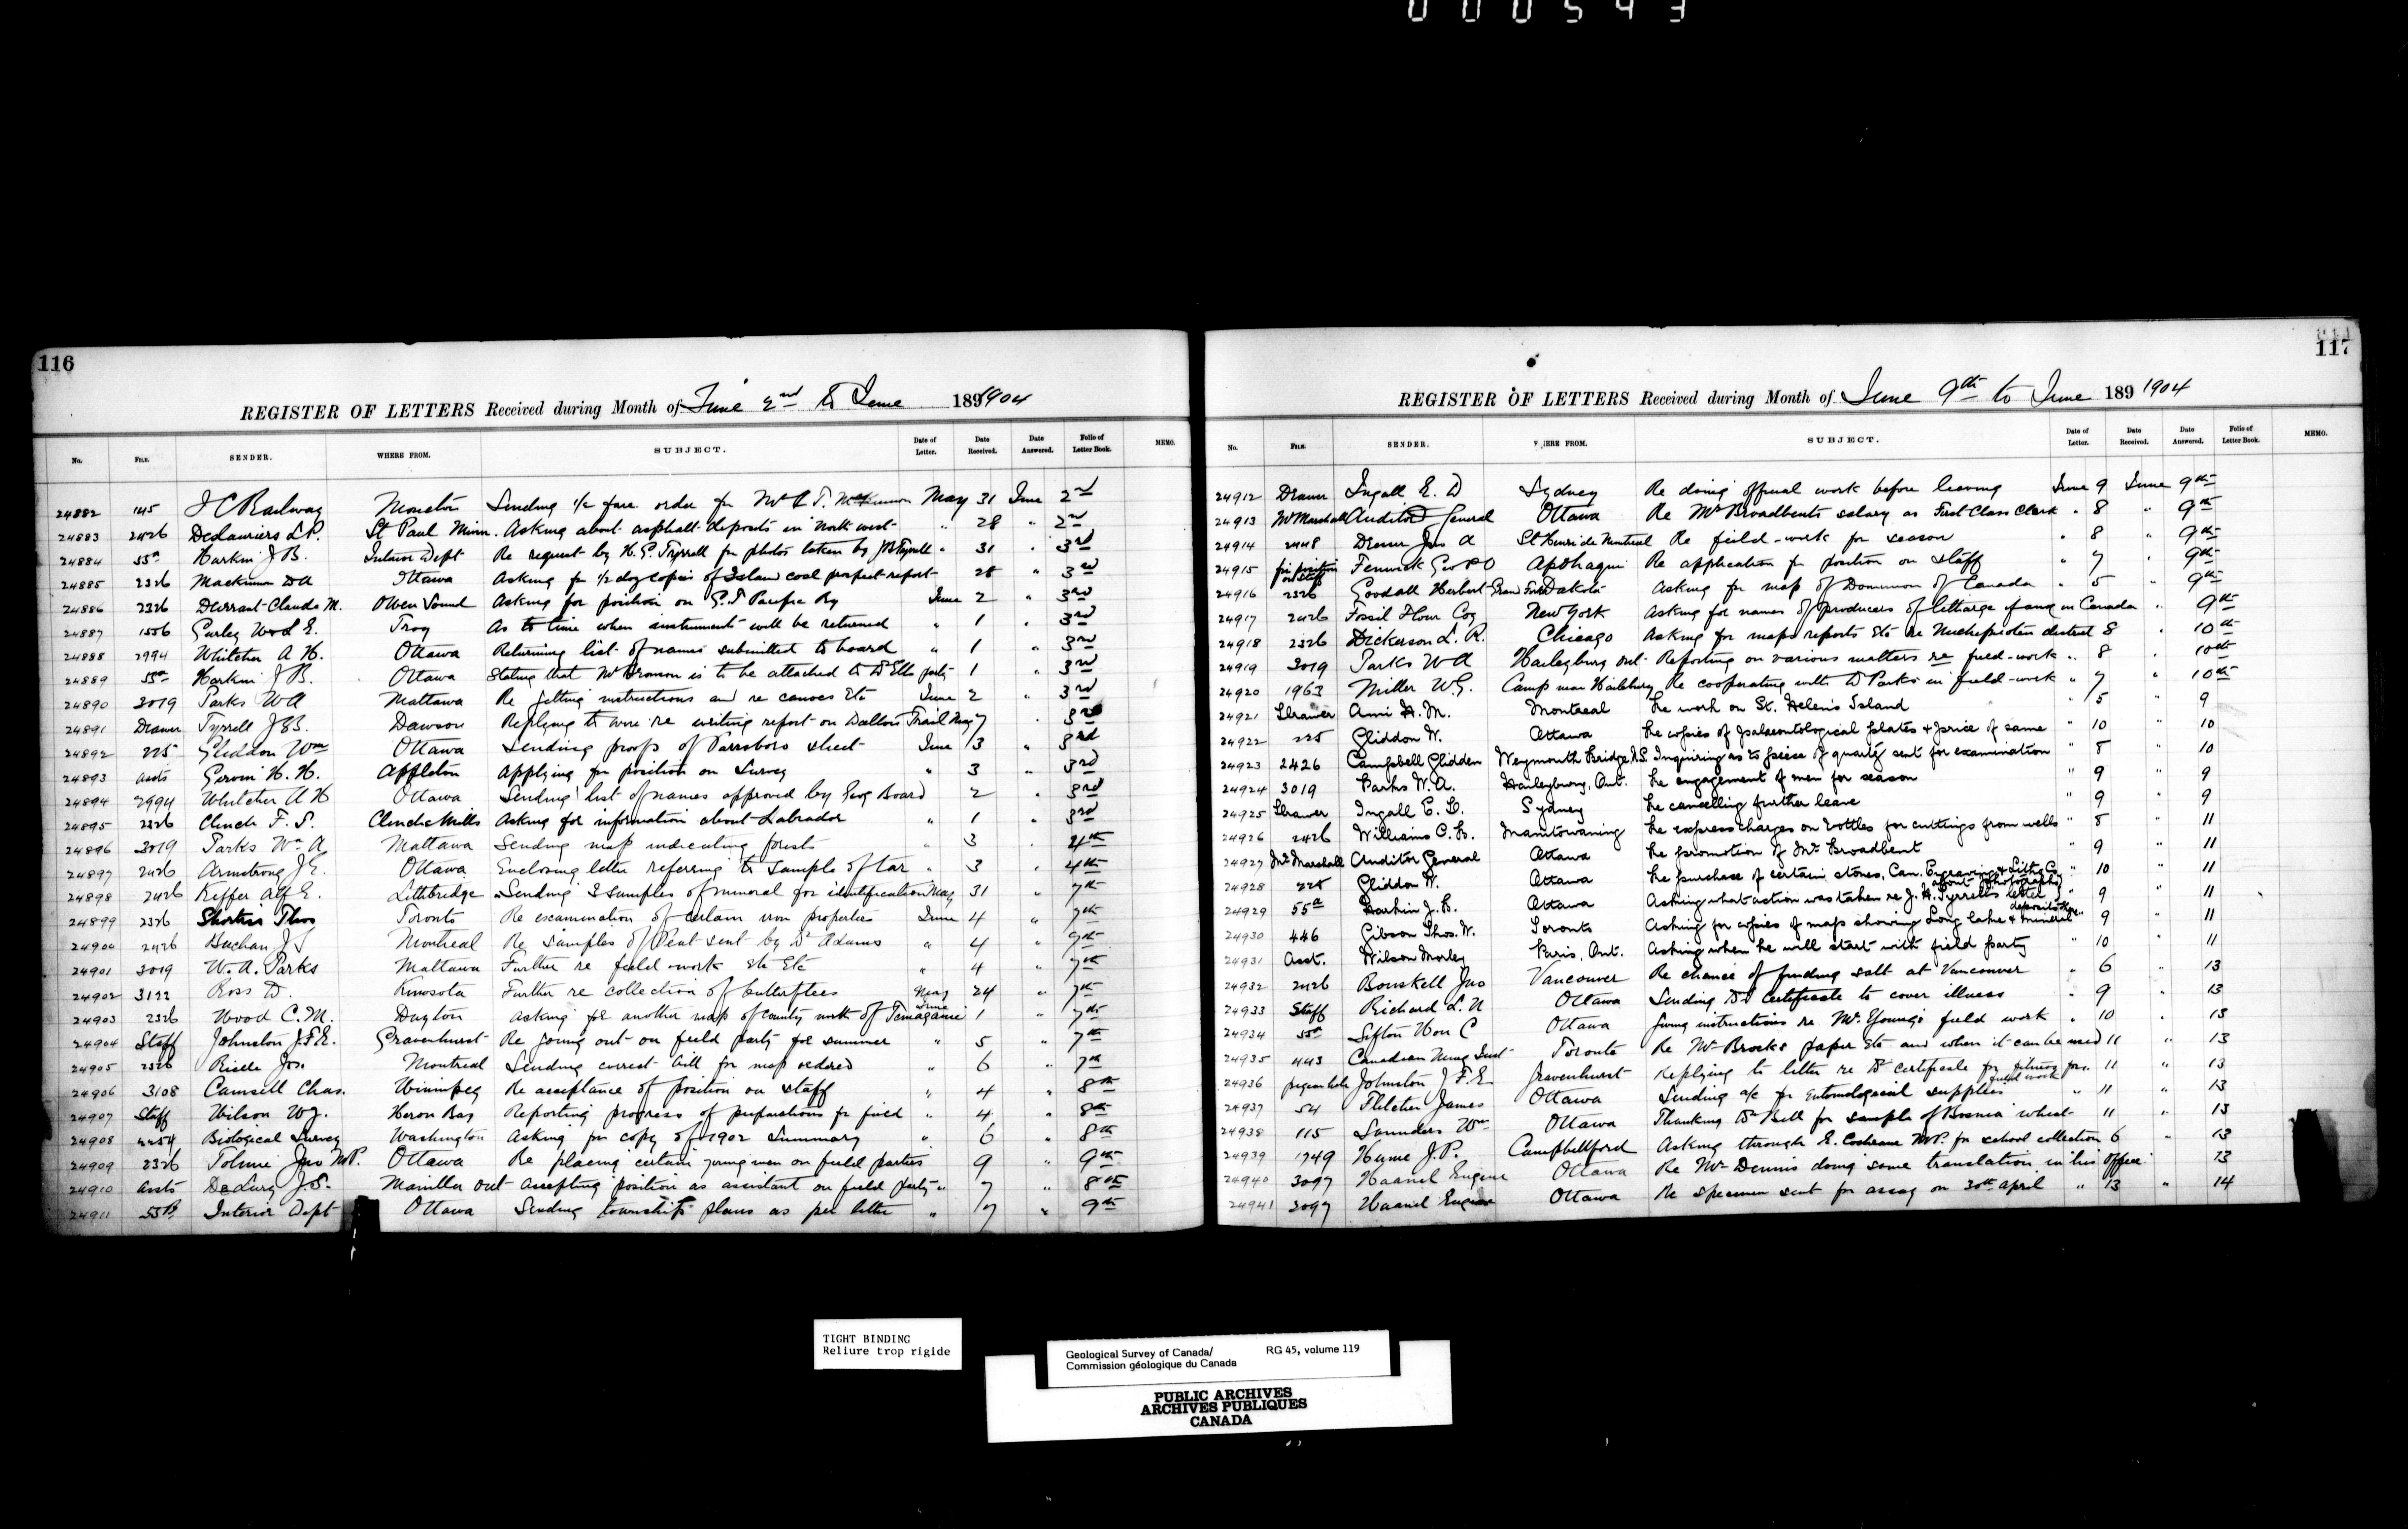 000543
116
REGISTER OF LETTERS Received during Month of June 2nd to June 1891904
No. FILE. SENDER. WHERE FROM. SUBJECT. Date of Letter. Date Received. Date Answered. Folio of Letter Book. MEMO.
24882 145 I C Railway Moncton Sending 1/2 fare order for Mr L T. May 31 June 2nd
24883 2426 DesLauriers L.P. St Paul Minn. Asking about asphalt deposits in North west " 28 " 2nd
24884 55a Harkin J B. Interior Dept Re request by H. G. Tyrrell for photos taken by J B Tyrrell " 31 " 3rd
24885 2326 Mackinnon D A Ottawa Asking for 1/2 doz copies of Island coal prospect report 28 " 3rd
24886 2326 Durrant Claude M. Owen Sound Asking for position on G. T Pacific Ry June 2 " 3rd
24887 1556 Gurley W & L E. Troy As to time when instruments will be returned " 1 " 3rd
24888 2994 Whitcher A H. Ottawa Returning list of names submitted to board " 1 " 3rd
24889 55a Harkin J B. Ottawa Stating that Mr Bronson is to be attached to Dr Ells party 1 " 3rd
24890 3019 Parks W A Mattawa Re getting instructions and re canoes Etc June 2 " 3rd
24891 Drawer Tyrrell J B. Dawson Replying to wire re writing report on Dalton Trail May 7 " 3rd
24892 225 Gliddon Wm Ottawa Sending proofs of Parrsboro sheet June 3 " 3rd
24893 assts H. H. Appleton Applying for position on Survey " 3 " 3rd
24894 2994 Whitcher A H Ottawa Sending list of names approved by Geog Board 2 " 3rd
24895 2326 Clinch F. S. Clinch Mills Asking for information about Labrador " 1 " 3rd
24896 3019 Parks Wm A Mattawa Sending map indicating forest " 3 " 4th
24897 2426 Armstrong J E. Ottawa Enclosing letter referring to sample of tar " 3 " 4th
24898 2426 Keffer Alf E. Lethbridge Sending 2 samples of mineral for identification May 31 " 7th
24899 2326 Shortiss Thos Toronto Re examination of certain iron properties June 4 " 7th
24900 2426 Buchan J S Montreal Re samples of Peat sent by Dr Adams " 4 " 7th
24901 3019 W. A. Parks Mattawa Further re field-work Etc Etc " 4 " 7th
24902 3122 Ross D. Kinosota Further re collection of butterflies May 24 " 7th
24903 2326 Wood C. M. Dayton Asking for another map of county north of Temagami June 1 " 7th
24904 Staff Johnston J.F.E. Gravenhurst Re going out on field party for summer " 5 " 7th
24905 2326 Jos. Montreal Sending correct bill for map ordered " 6 " 7th
24906 3108 Camsell Chas. Winnipeg Re acceptance of position on staff " 4 " 8th
24907 Staff Wilson W J. Heron Bay Reporting progress of preparations for field " 4 " 8th
24908 Biological Survey Washington Asking for copy of 1902 Summary " 6 " 8th
24909 2326 Tolmie Jno M.P. Ottawa Re placing certain young men on field parties 9 " 9th
24910 assts DeLury J.S. Manilla Ont Accepting position as assistant on field party " 7 " 8th
24911 Interior Dept Ottawa Sending township plans as per letter " 7 " 9th
117
REGISTER OF LETTERS Received during Month of June 9th to June 189 1904
No. FILE. SENDER. WHERE FROM. SUBJECT. Date of Letter. Date Received. Date Answered. Folio of Letter Book. MEMO.
24912 Drawer Ingall E. D Sydney Re doing official work before leaving June 9 June 9th
24913 Mr Marshall Auditor General Ottawa Re Mr Broadbents salary as First Class Clerk " 8 " 9th
24914 2448 Dresser Jno A St Henri de Montreal Re field-work for season " 8 " 9th
24915 for position on staff Fenwick Geo P O Apohaqui Re application for position on staff " 7 " 9th
24916 2326 Goodall Herbert Grand Forks Dakota Asking for map of Dominion of Canada " 5 " 9th
24917 2426 Fossil Flour Coy New York Asking for names of producers of litharge if any in Canada " 9th
24918 2326 Dickerson L. R. Chicago Asking for maps reports Etc re Michipicoten district 8 " 10th
24919 3019 Parks W A Haileybury Ont Reporting on various matters re field-work " 8 " 10th
24920 1963 Miller W.G. Camp near Haileybury Re cooperating with Dr Parks in field-work " 7 " 10th
24921 Drawer Ami H. M. Montreal Re work on St. Helen's Island " 5 " 9
24922 225 Gliddon W. Ottawa Re copies of palaeontological plates & price of same " 10 " 10
24923 2426 Campbell Glidden Weymouth Bridge, N.S. Inquiring as to piece of quartz sent for examination " 8 " 10
24924 3019 Parks W. A. Haileybury, Ont. Re engagement of men for season " 9 " 9
24925 Drawer Ingall E. D. Sydney Re cancelling further leave " 9 " 9
24926 2426 Williams C. B. Manitowaning Re express charges on bottles for cuttings from wells " 8 " 11
24927 Mr. Marshall Auditor General Ottawa Re promotion of Mr. Broadbent " 9 " 11
24928 225 Gliddon W. Ottawa Re purchase of certain stones, Can. Engraving & Litho Co " 10 " 11
24929 55a Harkin J. B. Ottawa Asking what action was taken re J. H. Tyrrell's letter about photographs " 9 " 11
24930 446 Gibson Thos. W. Toronto Asking for copies of map showing Long Lake & mineral deposits " 9 " 11
24931 Asst. Wilson Morley Paris, Ont. Asking when he will start with field party " 10 " 11
24932 2426 Bouskell Jno Vancouver Re chance of finding salt at Vancouver " 6 " 13
24933 Staff Richard L. N Ottawa Sending Dr's certificate to cover illness " 9 " 13
24934 55a Sifton Hon C Ottawa Giving instructions re Mr. Young's field work " 10 " 13
24935 443 Canadian Mining Inst Toronto Re Mr Brock's paper Etc and when it can be used 11 " 13
24936 pigeon hole Johnston J. F. E. Gravenhurst Replying to letter re Dr certificate for fitness for field work 11 " 13
24937 54 Fletcher James Ottawa Sending a/c for Entomological supplies " 11 " 13
24938 115 Saunders Wm Ottawa Thanking Dr Bell for sample of Bosnia wheat 11 " 13
24939 1749 Hume J. P. Campbellford Asking through E. Cochrane M.P. for school collection 6 " 13
24940 3097 Haanel Eugene Ottawa Re Mr Dennis doing some translation in his office 13
24941 3097 Haanel Eugene Ottawa Re specimen sent for assay on 30th April " 13 " 14
TIGHT BINDING
Reliure trop rigide
Geological Survey of Canada/ RG 45, volume 119
Commission géologique du Canada
PUBLIC ARCHIVES
ARCHIVES PUBLIQUES
CANADA